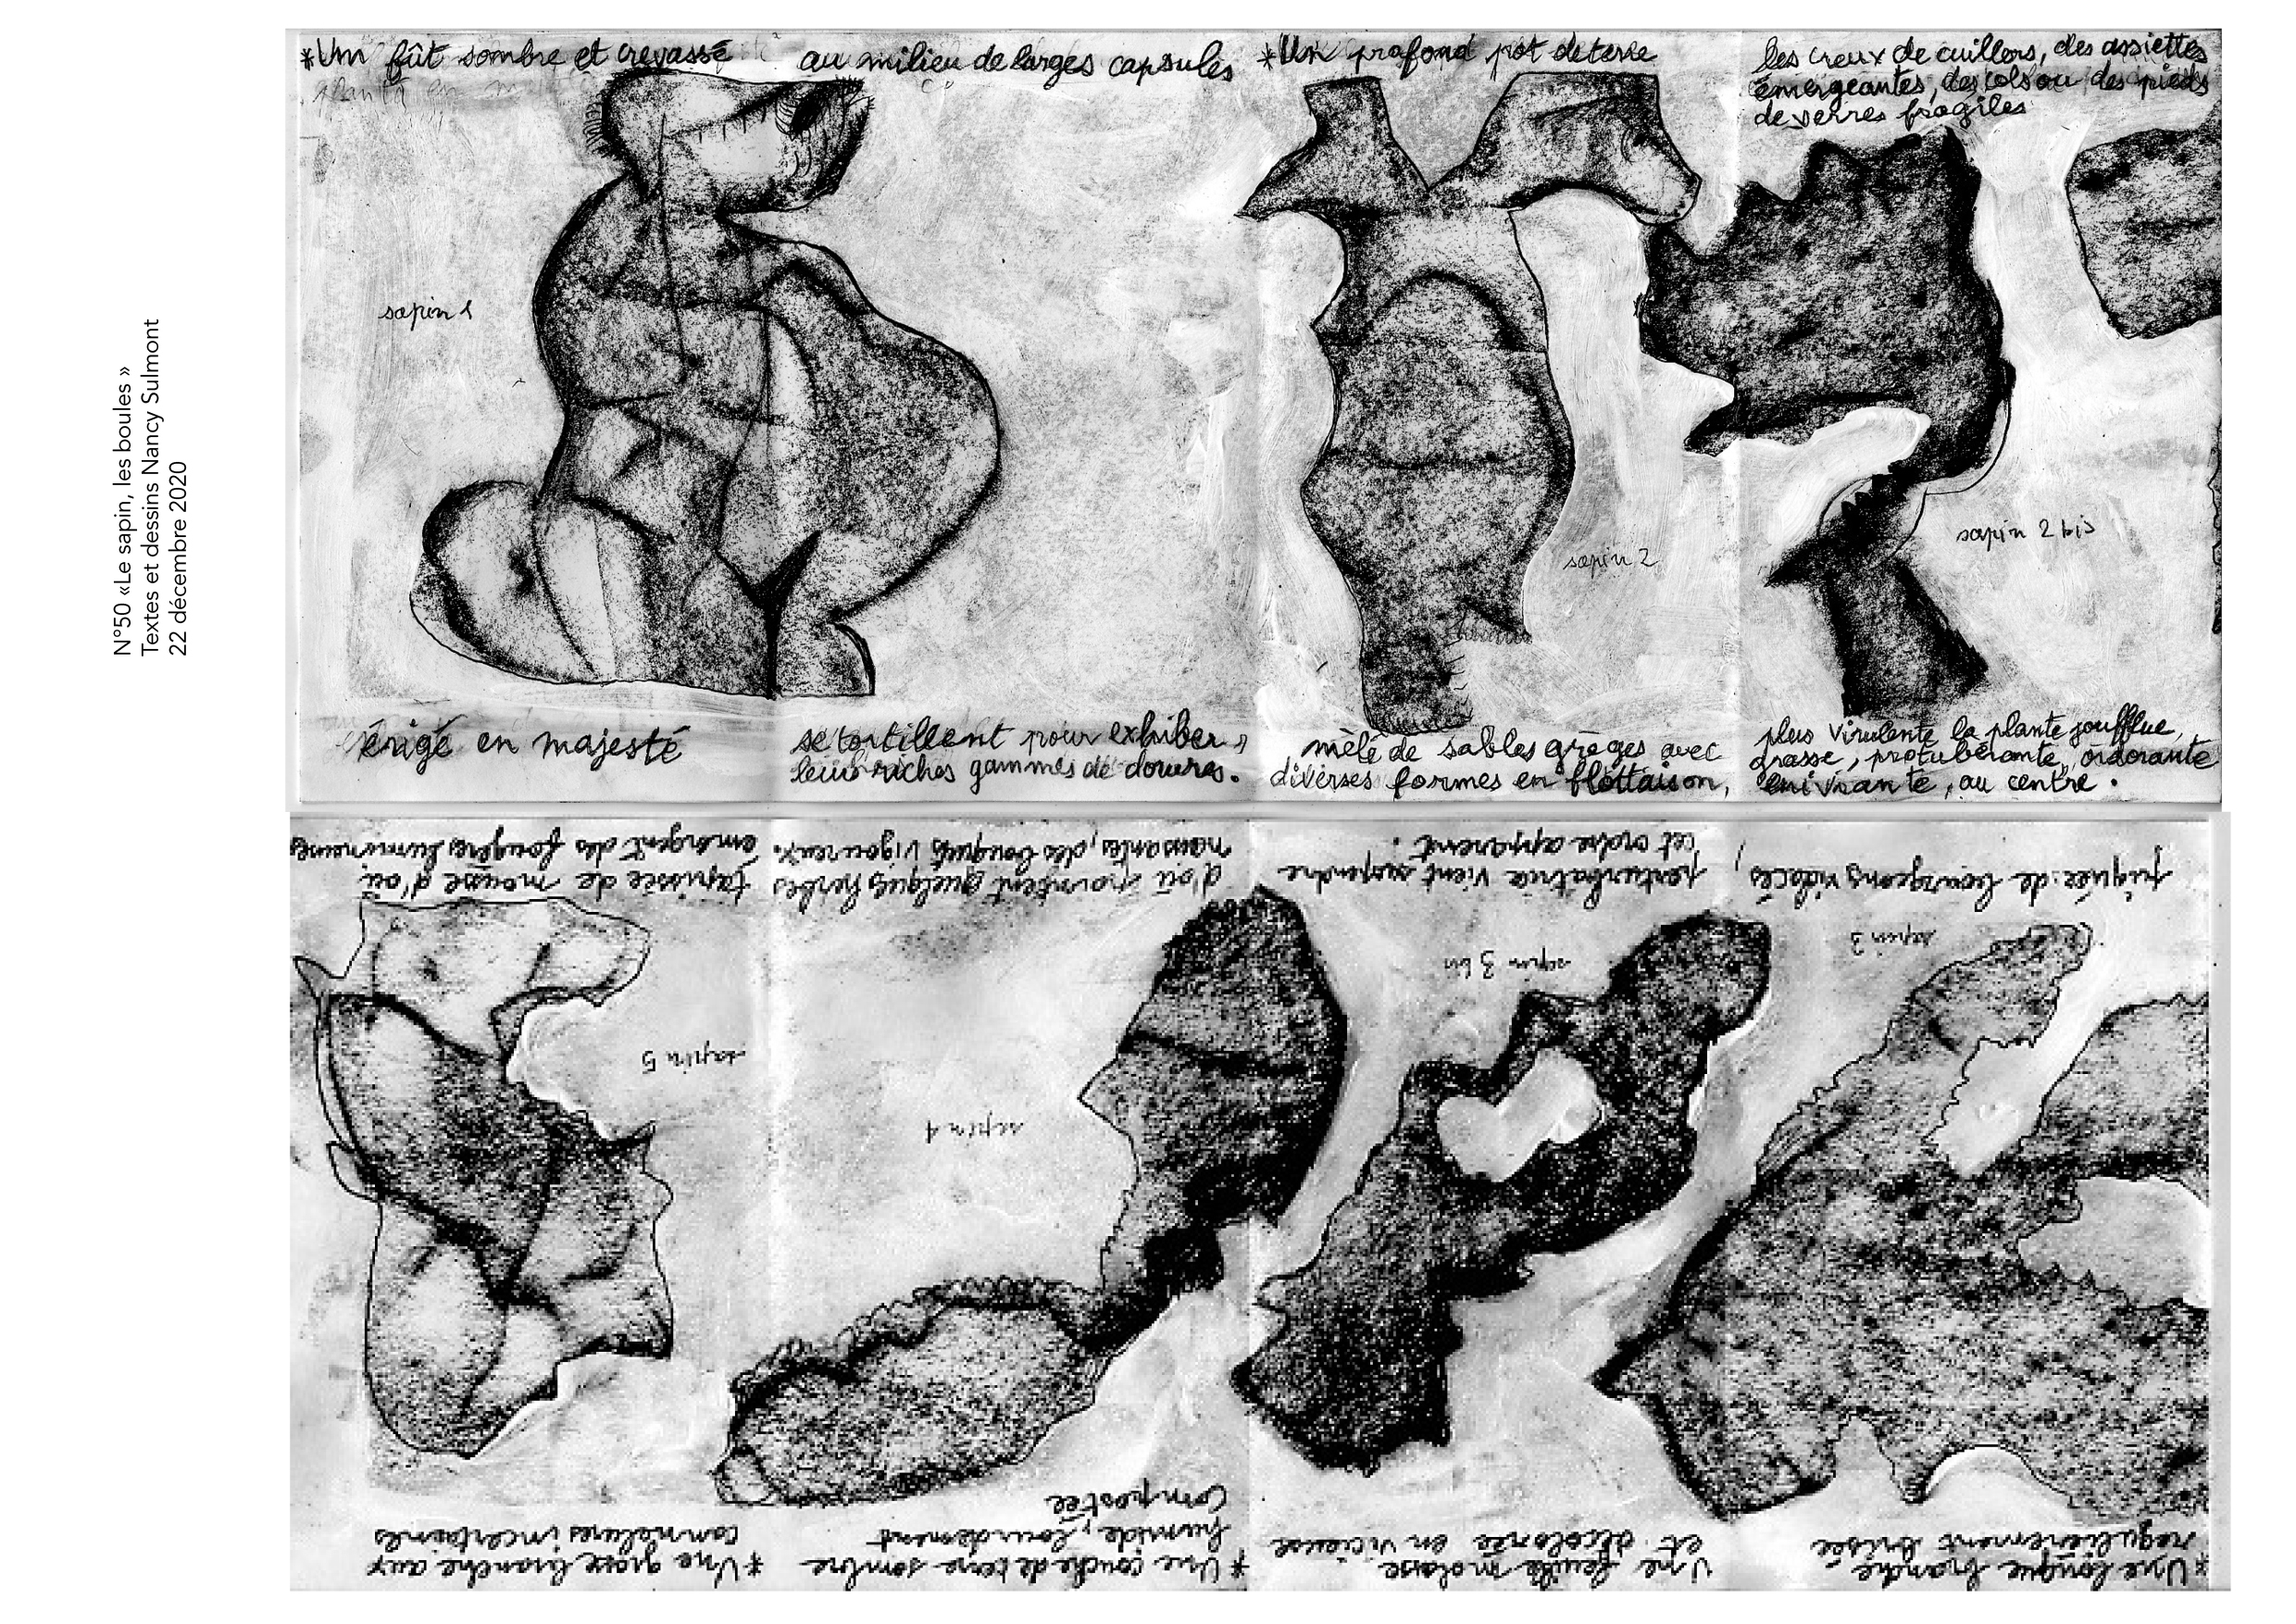 N°50 «Le sapin, les boules »
Textes et dessins Nancy Sulmont
22 décembre 2020
*Un fût sombre et crevassé
sapin 1
érigé en majesté
au milieu de larges capsules
se tortillent pour exhiber
leurs riches gammes de dorures.
*Un profond pot de terre
sapin 2
mêlé de sables grèges avec
diverses formes en flottaison,
des creux de cuillers, des assiettes
émergeantes, des cols ou des pieds
de verres fragiles
sapin 2 bis
plus virulente la plante joufflue,
grasse, protubérante, odorante
enivrante, au centre.
*Une longue branche
regulièrement brisée
sapin 3
piquée de bourgeons violacés,
Une feuille molasse
et décolorée en vicieuse
sapin 3 bis
perturbatrice vient suspendre
cet ordre apparent.
*Une couche de terre sombre
humide, lourdement
compostée
sapin 4
d'où pointent quelques herbes
naissantes, des bouquets vigoureux.
*Une grosse branche aux
cornelures incertaines
sapin 5
tapissée de mousse d'où
émergent des fougères lumineuses